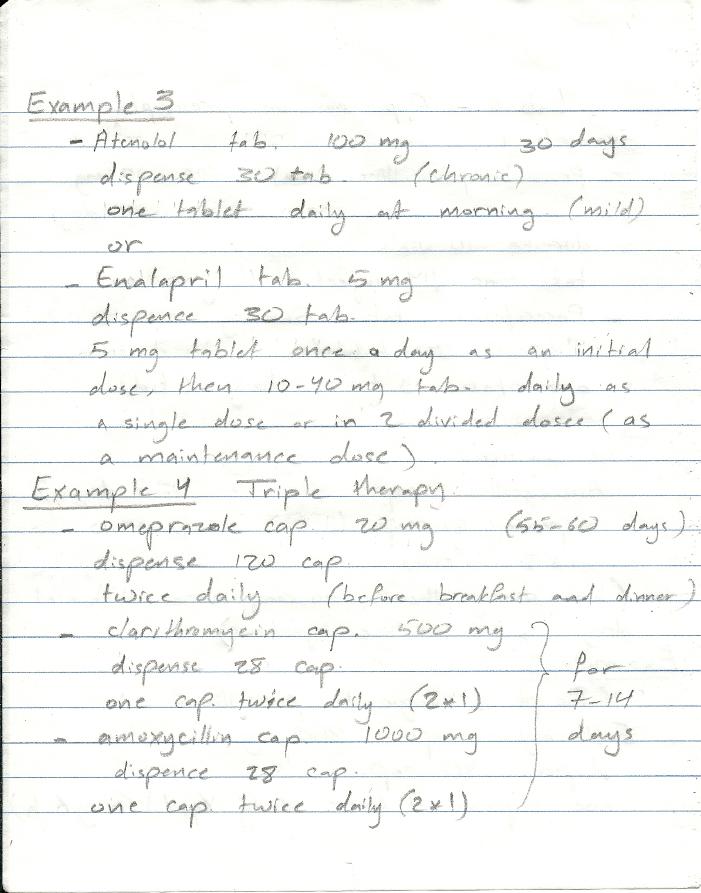 Example 3
- Atenolol tab. 100 mg 30 days
dispense 30 tab. (chronic)
one tablet daily at morning (mild)
or
- Enalapril tab. 5 mg
dispence 30 tab.
5 mg tablet once a day as an initial
dose, then 10-40 mg tab. daily as
a single dose or in 2 divided doses (as
a maintenance dose)
Example 4 Triple therapy
- omeprazole cap. 20 mg (55-60 days)
dispense 120 cap
twice daily (before breakfast and dinner)
- clarithromycin cap. 500 mg
dispense 28 cap.
one cap. twice daily (2*1)
- amoxycillin cap. 1000 mg
dispence 28 cap.
one cap. twice daily (2*1)
for
7-14
days